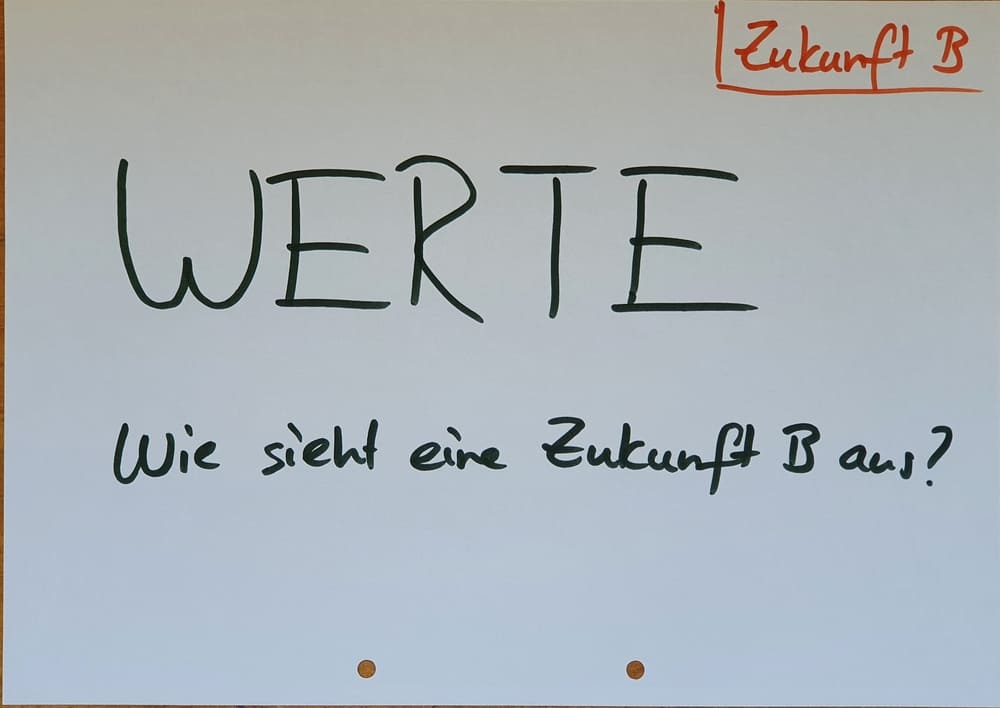 Zukunft B
WERTE
Wie sieht eine Zukunft B aus?